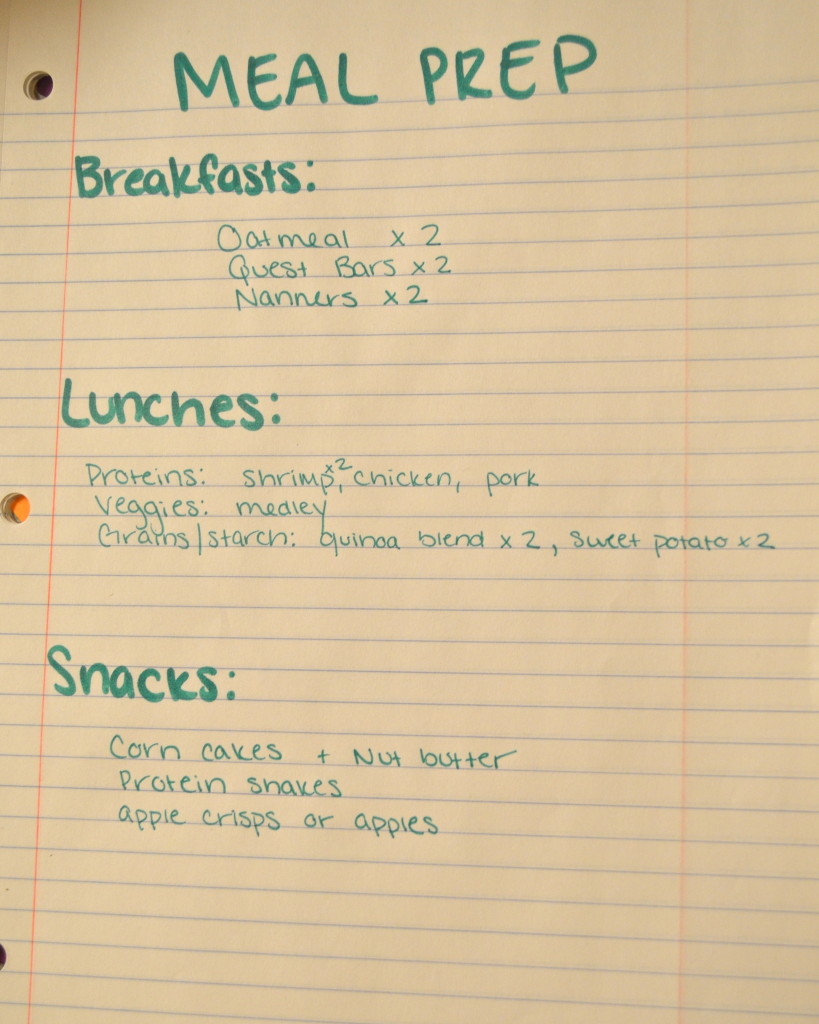 MEAL PREP
Breakfasts:
Oatmeal x 2
Quest Bars x 2
Nanners x 2
Lunches:
Proteins: shrimp x2, chicken, pork
Veggies: medley
Grains/starch: quinoa blend x 2, sweet potato x 2
Snacks:
Corn cakes + Nut butter
Protein shakes
apple crisps or apples